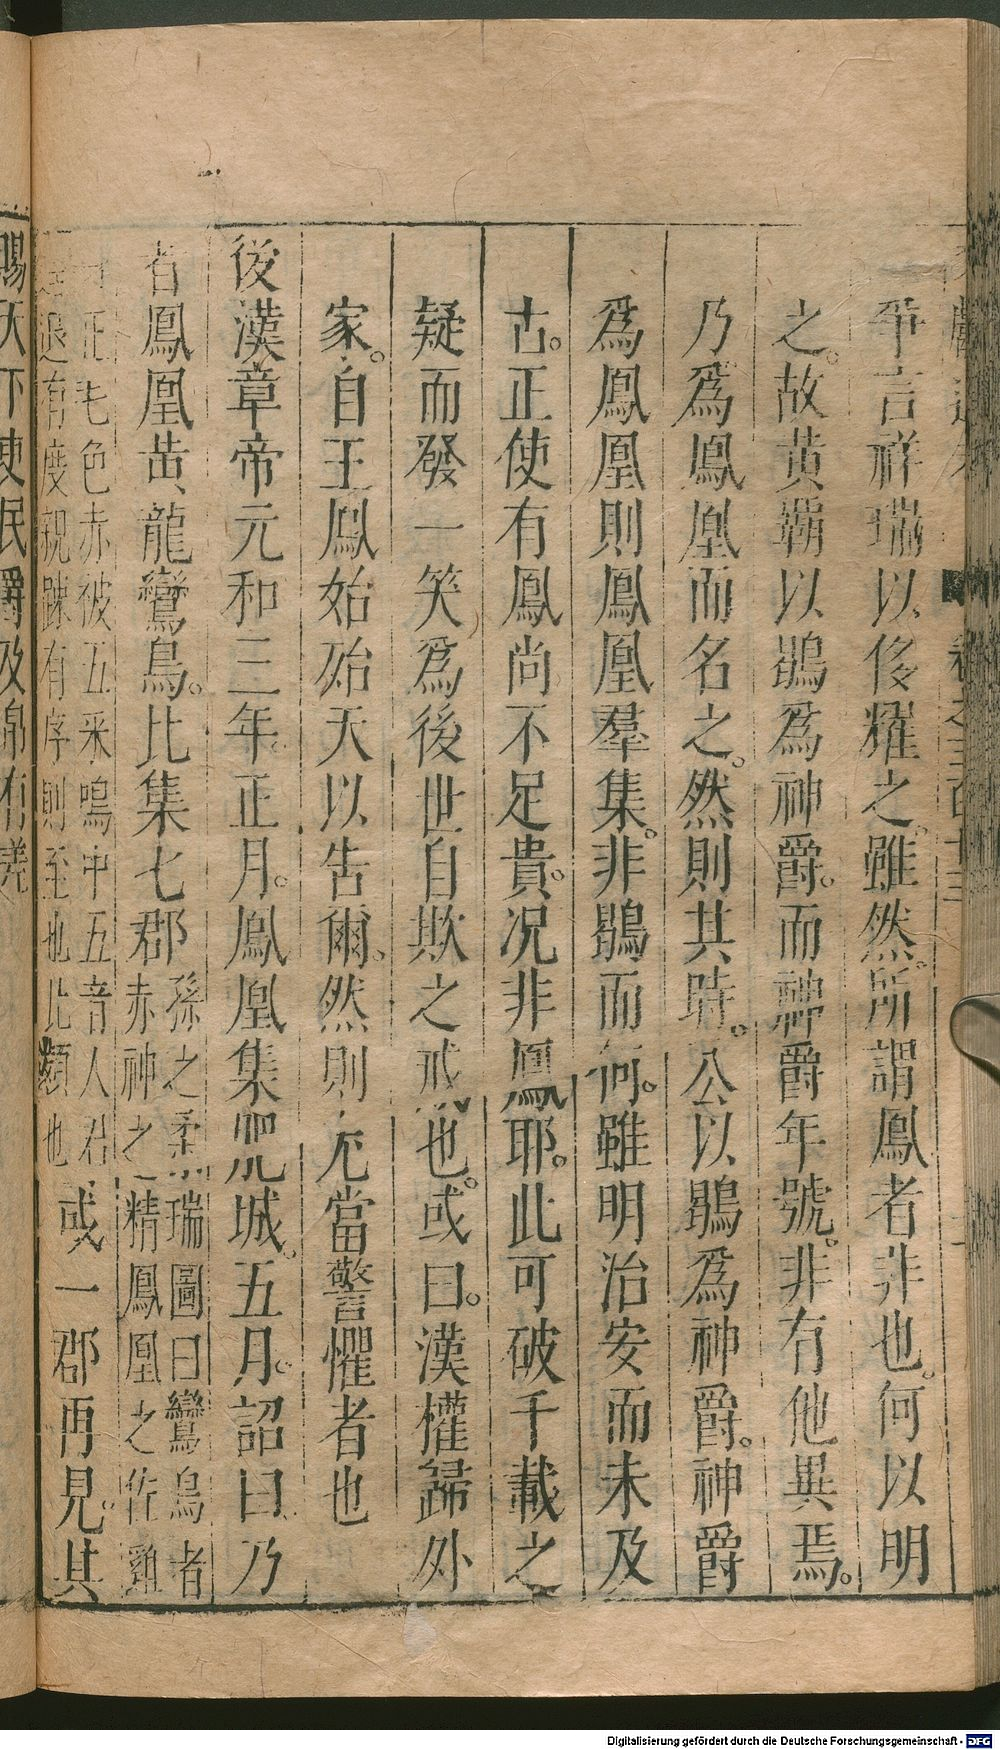 爭言祥瑞以侈耀之。雖然。所謂鳳者非也。何以明
之。故黃霸以鶡爲神爵。而神爵年號。非有他異焉。
乃爲鳳凰而名之。然則其時。公以鶡爲神爵。神爵
爲鳳凰則鳳凰羣集。非鶡而何。雖明治安而未及
古。正使有鳳尚不足貴。况非鳳耶。此可破千載之
疑而發一笑爲後世自欺之戒也。或曰。漢權歸外
家。自王鳳始殆天以告爾。然則尤當警懼者也
後漢章帝元和三年。正月。鳳凰集肥城。五月。詔曰乃
者鳳凰黃龍鸞鳥。比集七郡
孫之柔瑞圖曰鸞鳥者
赤神之精鳳凰之佐雞
毛色赤被五采鳴中五音人君
進退有度親踈有序則至也比類也
或一郡再見。其
賜天下吏民爵及帛有差
Digitalisierung gefördert durch die Deutsche Forschungsgemeinschaft - DFG